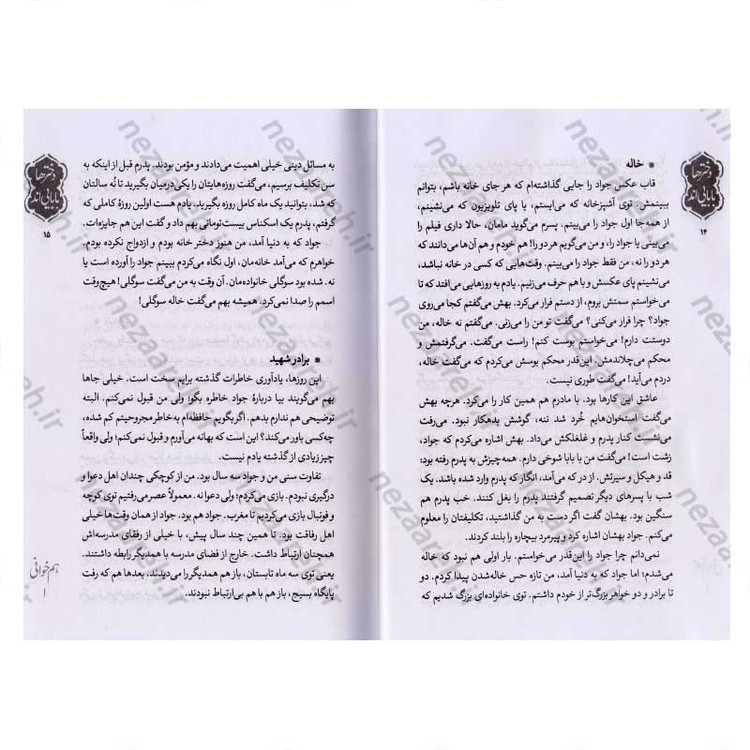 دخترها
بابایی‌اند
۱۴
● خاله
قاب عکس جواد را جایی گذاشته‌ام که هر جای خانه باشم، بتوانم
ببینمش. توی آشپزخانه که می‌ایستم، یا پای تلویزیون که می‌نشینم،
از همه‌جا اول جواد را می‌بینم. پسرم می‌گوید مامان، حالا داری فیلم را
می‌بینی یا جواد را، و من می‌گویم هر دو را! هم خودم و هم آن‌ها می‌دانند که
هر دو را نه، من فقط جواد را می‌بینم. وقت‌هایی که کسی در خانه نباشد،
می‌نشینم پای عکسش و با هم حرف می‌زنیم. یادم به روزهایی می‌افتد که تا
می‌خواستم سمتش بروم، از دستم فرار می‌کرد. بهش می‌گفتم کجا می‌روی
جواد؟ چرا فرار می‌کنی؟ می‌گفت تو من را می‌زنی. می‌گفتم نه خاله، من
دوستت دارم! می‌خواستم بوست کنم! راست می‌گفت. می‌گرفتمش و
محکم می‌چلاندمش. این‌قدر محکم بوسش می‌کردم که می‌گفت خاله،
دردم می‌آید! می‌گفت طوری نیست.
عاشق این کارها بود. با مادرم هم همین کار را می‌کرد. هرچه بهش
می‌گفت استخوان‌هایم خُرد شد ننه، گوشش بدهکار نبود. می‌رفت
می‌نشست کنار پدرم و غلغلکش می‌داد. بهش اشاره می‌کردم که جواد،
زشت است! می‌گفت من با بابا شوخی دارم. همه‌چیزش به پدرم رفته بود؛
قد و هیکل و سیرتش. از در که می‌آمد، انگار که پدرم وارد شده باشد. یک
شب با پسرهای دیگر تصمیم گرفتند پدرم را بغل کنند. خب پدرم هم
سنگین بود. بهشان گفت اگر دست به من گذاشتید، تکلیفتان را معلوم
می‌کنم. جواد بهشان اشاره کرد و پیرمرد بیچاره را بلند کردند.
نمی‌دانم چرا جواد را این‌قدر می‌خواستم. بار اولی هم نبود که خاله
می‌شدم؛ اما جواد که به دنیا آمد، من تازه حس خاله‌شدن پیدا کردم. دو
تا برادر و دو خواهر بزرگ‌تر از خودم داشتم. توی خانواده‌ای بزرگ شدیم که
دخترها
بابایی‌اند
۱۵
به مسائل دینی خیلی اهمیت می‌دادند و مؤمن بودند. پدرم قبل از اینکه به
سن تکلیف برسیم، می‌گفت روزه‌هایتان را یکی‌درمیان بگیرید تا نُه سالتان
که شد، بتوانید یک ماه کامل روزه بگیرید. یادم هست اولین روزهٔ کاملی که
گرفتم، پدرم یک اسکناس بیست‌تومانی بهم داد و گفت این هم جایزه‌ات.
جواد که به دنیا آمد، من هنوز دختر خانه بودم و ازدواج نکرده بودم.
خواهرم که می‌آمد خانه‌مان، اول نگاه می‌کردم ببینم جواد را آورده است یا
نه. شده بود سوگلی خانواده‌مان. آن وقت به من می‌گفت سوگلی! هیچ‌وقت
اسمم را صدا نمی‌کرد. همیشه بهم می‌گفت خاله سوگلی!
● برادر شهید
این روزها، یادآوری خاطرات گذشته برایم سخت است. خیلی جاها
بهم می‌گویند بیا دربارهٔ جواد خاطره بگو! ولی من قبول نمی‌کنم. البته
توضیحی هم ندارم بدهم. اگر بگویم حافظه‌ام به خاطر مجروحیتم کم شده،
چه‌کسی باور می‌کند؟ این است که بهانه می‌آورم و قبول نمی‌کنم؛ ولی واقعاً
چیز زیادی از گذشته یادم نیست.
تفاوت سنی من و جواد سه سال بود. من از کوچکی چندان اهل دعوا و
درگیری نبودم. بازی می‌کردم؛ ولی دعوا نه. معمولاً عصر می‌رفتیم توی کوچه
و فوتبال بازی می‌کردیم تا مغرب. جواد هم بود. جواد از همان وقت‌ها خیلی
اهل رفاقت بود. تا همین چند سال پیش، با خیلی از رفقای مدرسه‌اش
همچنان ارتباط داشت. خارج از فضای مدرسه با همدیگر رابطه داشتند.
یعنی توی سه ماه تابستان، باز هم همدیگر را می‌دیدند. بعدها هم که رفت
پایگاه بسیج، باز هم با هم بی‌ارتباط نبودند.
هم‌خوانی
۱
nezaarehp.ir